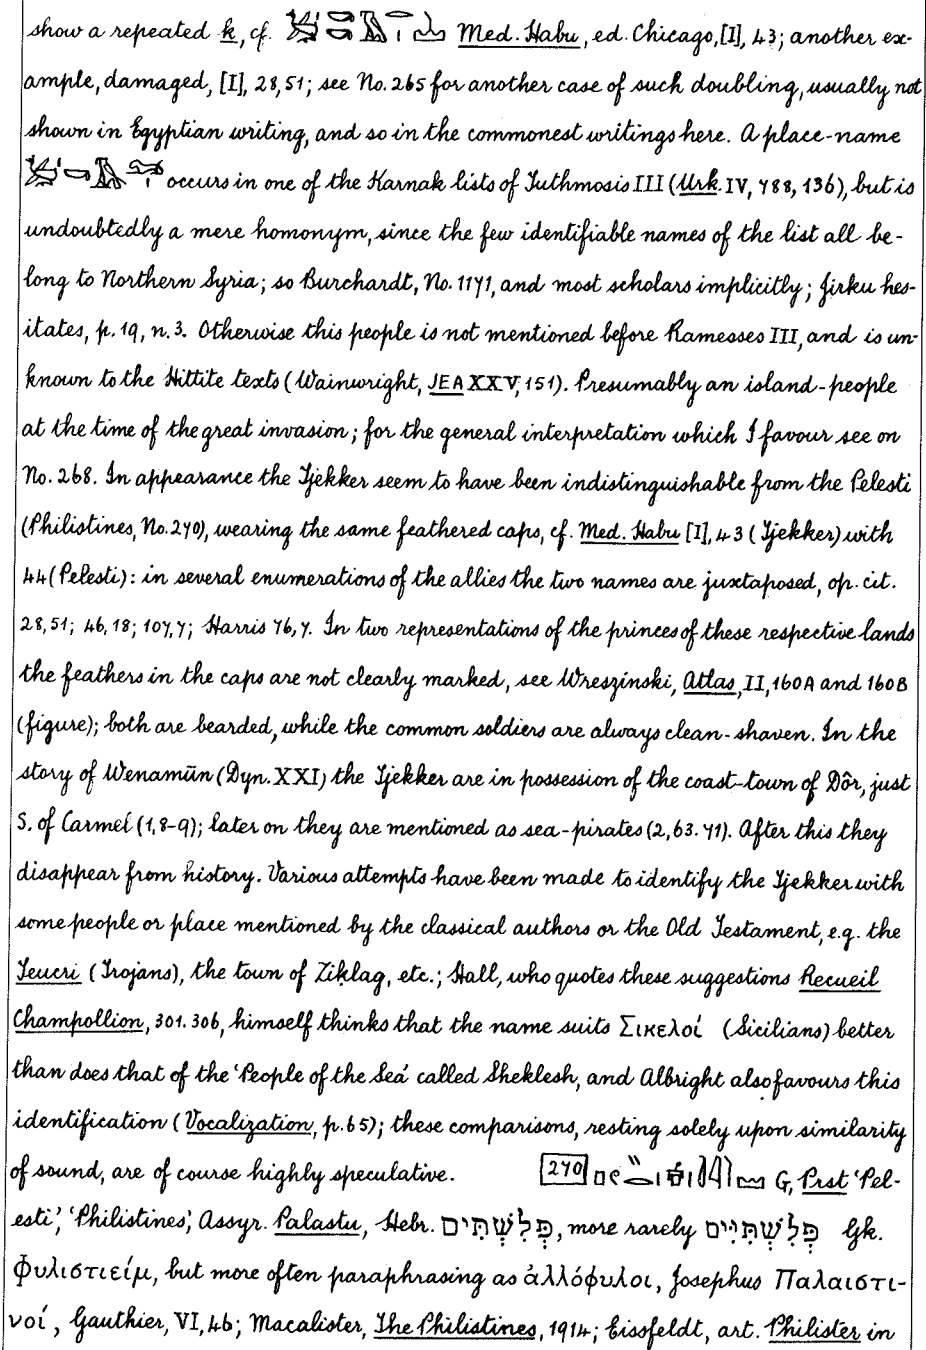 show a repeated ḳ, cf. Med. Habu, ed. Chicago, [I], 43; another ex-
ample, damaged, [I], 28, 51; see No. 265 for another case of such doubling, usually not
shown in Egyptian writing, and so in the commonest writings here. A place-name
occurs in one of the Karnak lists of Tuthmosis III (Urk. IV, 788, 136), but is
undoubtedly a mere homonym, since the few identifiable names of the list all be-
long to Northern Syria; so Burchardt, No. 1171, and most scholars implicitly; Jirku hes-
itates, p. 19, n. 3. Otherwise this people is not mentioned before Ramesses III, and is un-
known to the Hittite texts (Wainwright, JEA XXV, 151). Presumably an island-people
at the time of the great invasion; for the general interpretation which I favour see on
No. 268. In appearance the Tjekker seem to have been indistinguishable from the Pelesti
(Philistines, No. 270), wearing the same feathered caps, cf. Med. Habu [I], 43 (Tjekker) with
44 (Pelesti): in several enumerations of the allies the two names are juxtaposed, op. cit.
28, 51; 46, 18; 107, 7; Harris 76, 7. In two representations of the princes of these respective lands
the feathers in the caps are not clearly marked, see Wreszinski, Atlas, II, 160A and 160B
(figure); both are bearded, while the common soldiers are always clean-shaven. In the
story of Wenamūn (Dyn. XXI) the Tjekker are in possession of the coast-town of Dôr, just
S. of Carmel (1, 8-9); later on they are mentioned as sea-pirates (2, 63. 71). After this they
disappear from history. Various attempts have been made to identify the Tjekker with
some people or place mentioned by the classical authors or the Old Testament, e.g. the
Teucri (Trojans), the town of Ziḳlag, etc.; Hall, who quotes these suggestions Recueil
Champollion, 301. 306, himself thinks that the name suits Σικελοί (Sicilians) better
than does that of the 'People of the Sea' called Sheklesh, and Albright also favours this
identification (Vocalization, p. 65); these comparisons, resting solely upon similarity
of sound, are of course highly speculative. 270 G, Prst 'Pel-
esti', 'Philistines', Assyr. Palastu, Hebr. פְּלִשְׁתִּים, more rarely פְּלִשְׁתִּיִּים Gk.
Φυλιστιείμ, but more often paraphrasing as ἀλλόφυλοι, Josephus Παλαιστι-
νοί, Gauthier, VI, 46; Macalister, The Philistines, 1914; Eissfeldt, art. Philister in